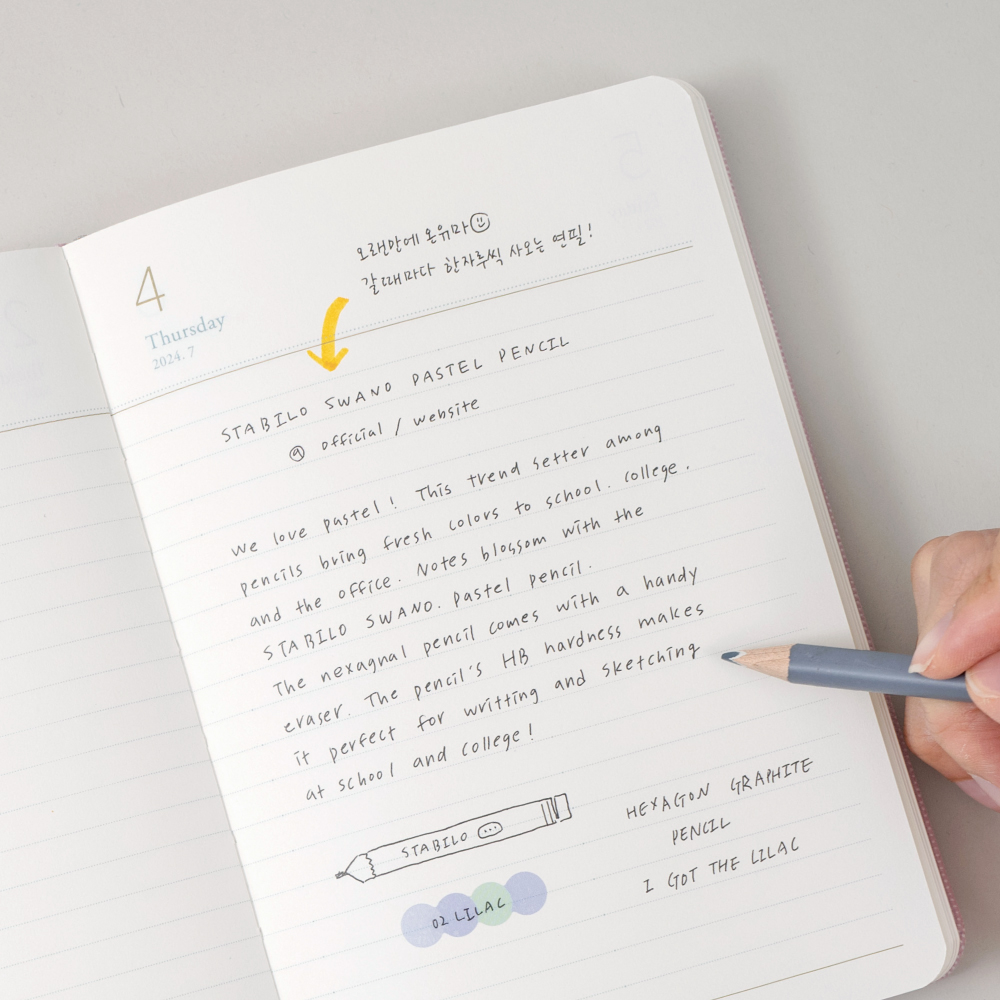 4
Thursday
2024. 7
오랜만에 온유마
갈때마다 한자루씩 사오는 연필!
STABILO SWANO PASTEL PENCIL
@ official / website
we love pastel! This trend setter among
pencils bring fresh colors to school. college.
and the office. Notes blossom with the
STABILO SWANO. pastel pencil.
The nexagnal pencil comes with a handy
eraser. The pencil's HB hardness makes
it perfect for writting and sketching
at school and college!
STABILO
02 LILAC
HEXAGON GRAPHITE
PENCIL
I GOT THE LILAC